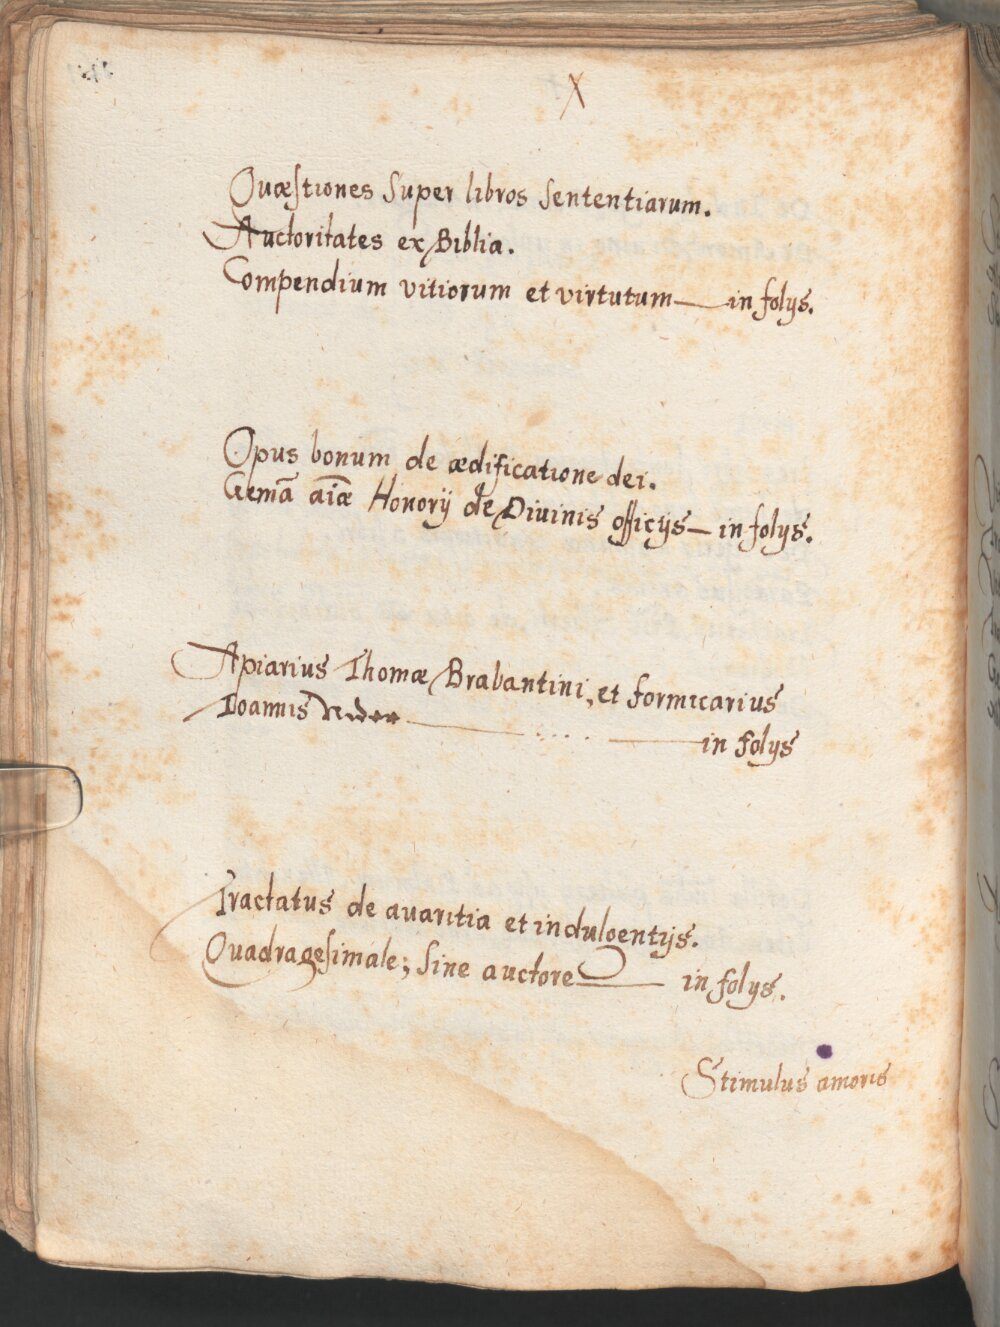 X
Quæstiones super libros sententiarum.
Auctoritates ex Biblia.
Compendium vitiorum et virtutum — in folijs.
Opus bonum de ædificatione dei.
Gemã aĩæ Honorij de Diuinis officijs — in folijs.
Apiarius Thomæ Brabantini, et formicarius
Ioannis
in folijs
Tractatus de auaritia et indulgentijs.
Quadragesimale; sine auctore — in folijs.
Stimulus amoris